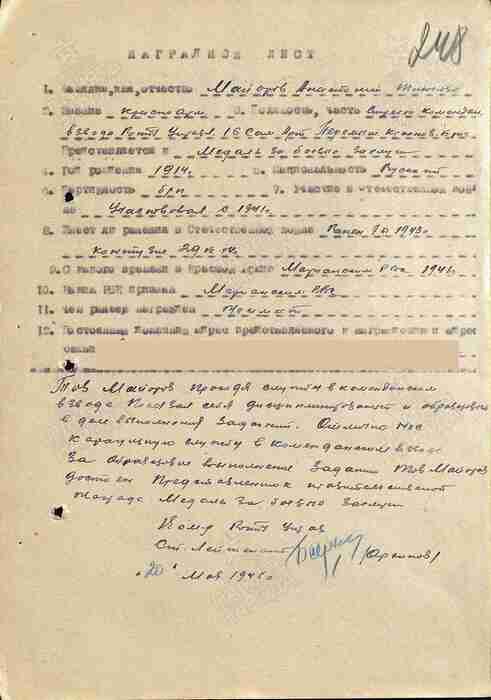 248
НАГРАДНОЙ ЛИСТ
1. Фамилия, имя, отчество Майоров Анатолий
2. Звание красноарм 3. Должность, часть Стрелок комендан.
взвода Роты Управ. 16 Сам Арт
Представляется к Медаль За боевые заслуги
4. Год рождения 1914г. 5. Национальность Русский
6. Партийность б/п 7. Участие в отечественной вой
не Участвовал с 1941г.
8. Имеет ли ранения в Отечественной войне Ранен 1943г.
контузия
9. С какого времени в Красной Армии РВК 1941г
10. Каким РВК призван РВК
11. Чем ранее награжден
12. Постоянный домашний адрес представляемого к награждению и адрес
семьи
Тов Майоров проходя службу в комендантском
взводе Показал себя дисциплинированным и образцовым
в деле выполнения заданий. Отлично нес
караульную службу в комендантском взводе
За образцовое выполнение задания Тов Майоров
достоин Представления к правительственной
награде Медаль За боевые заслуги
Ком-р Роты Управ
Ст. Лейтенант
"20" Мая 1945г